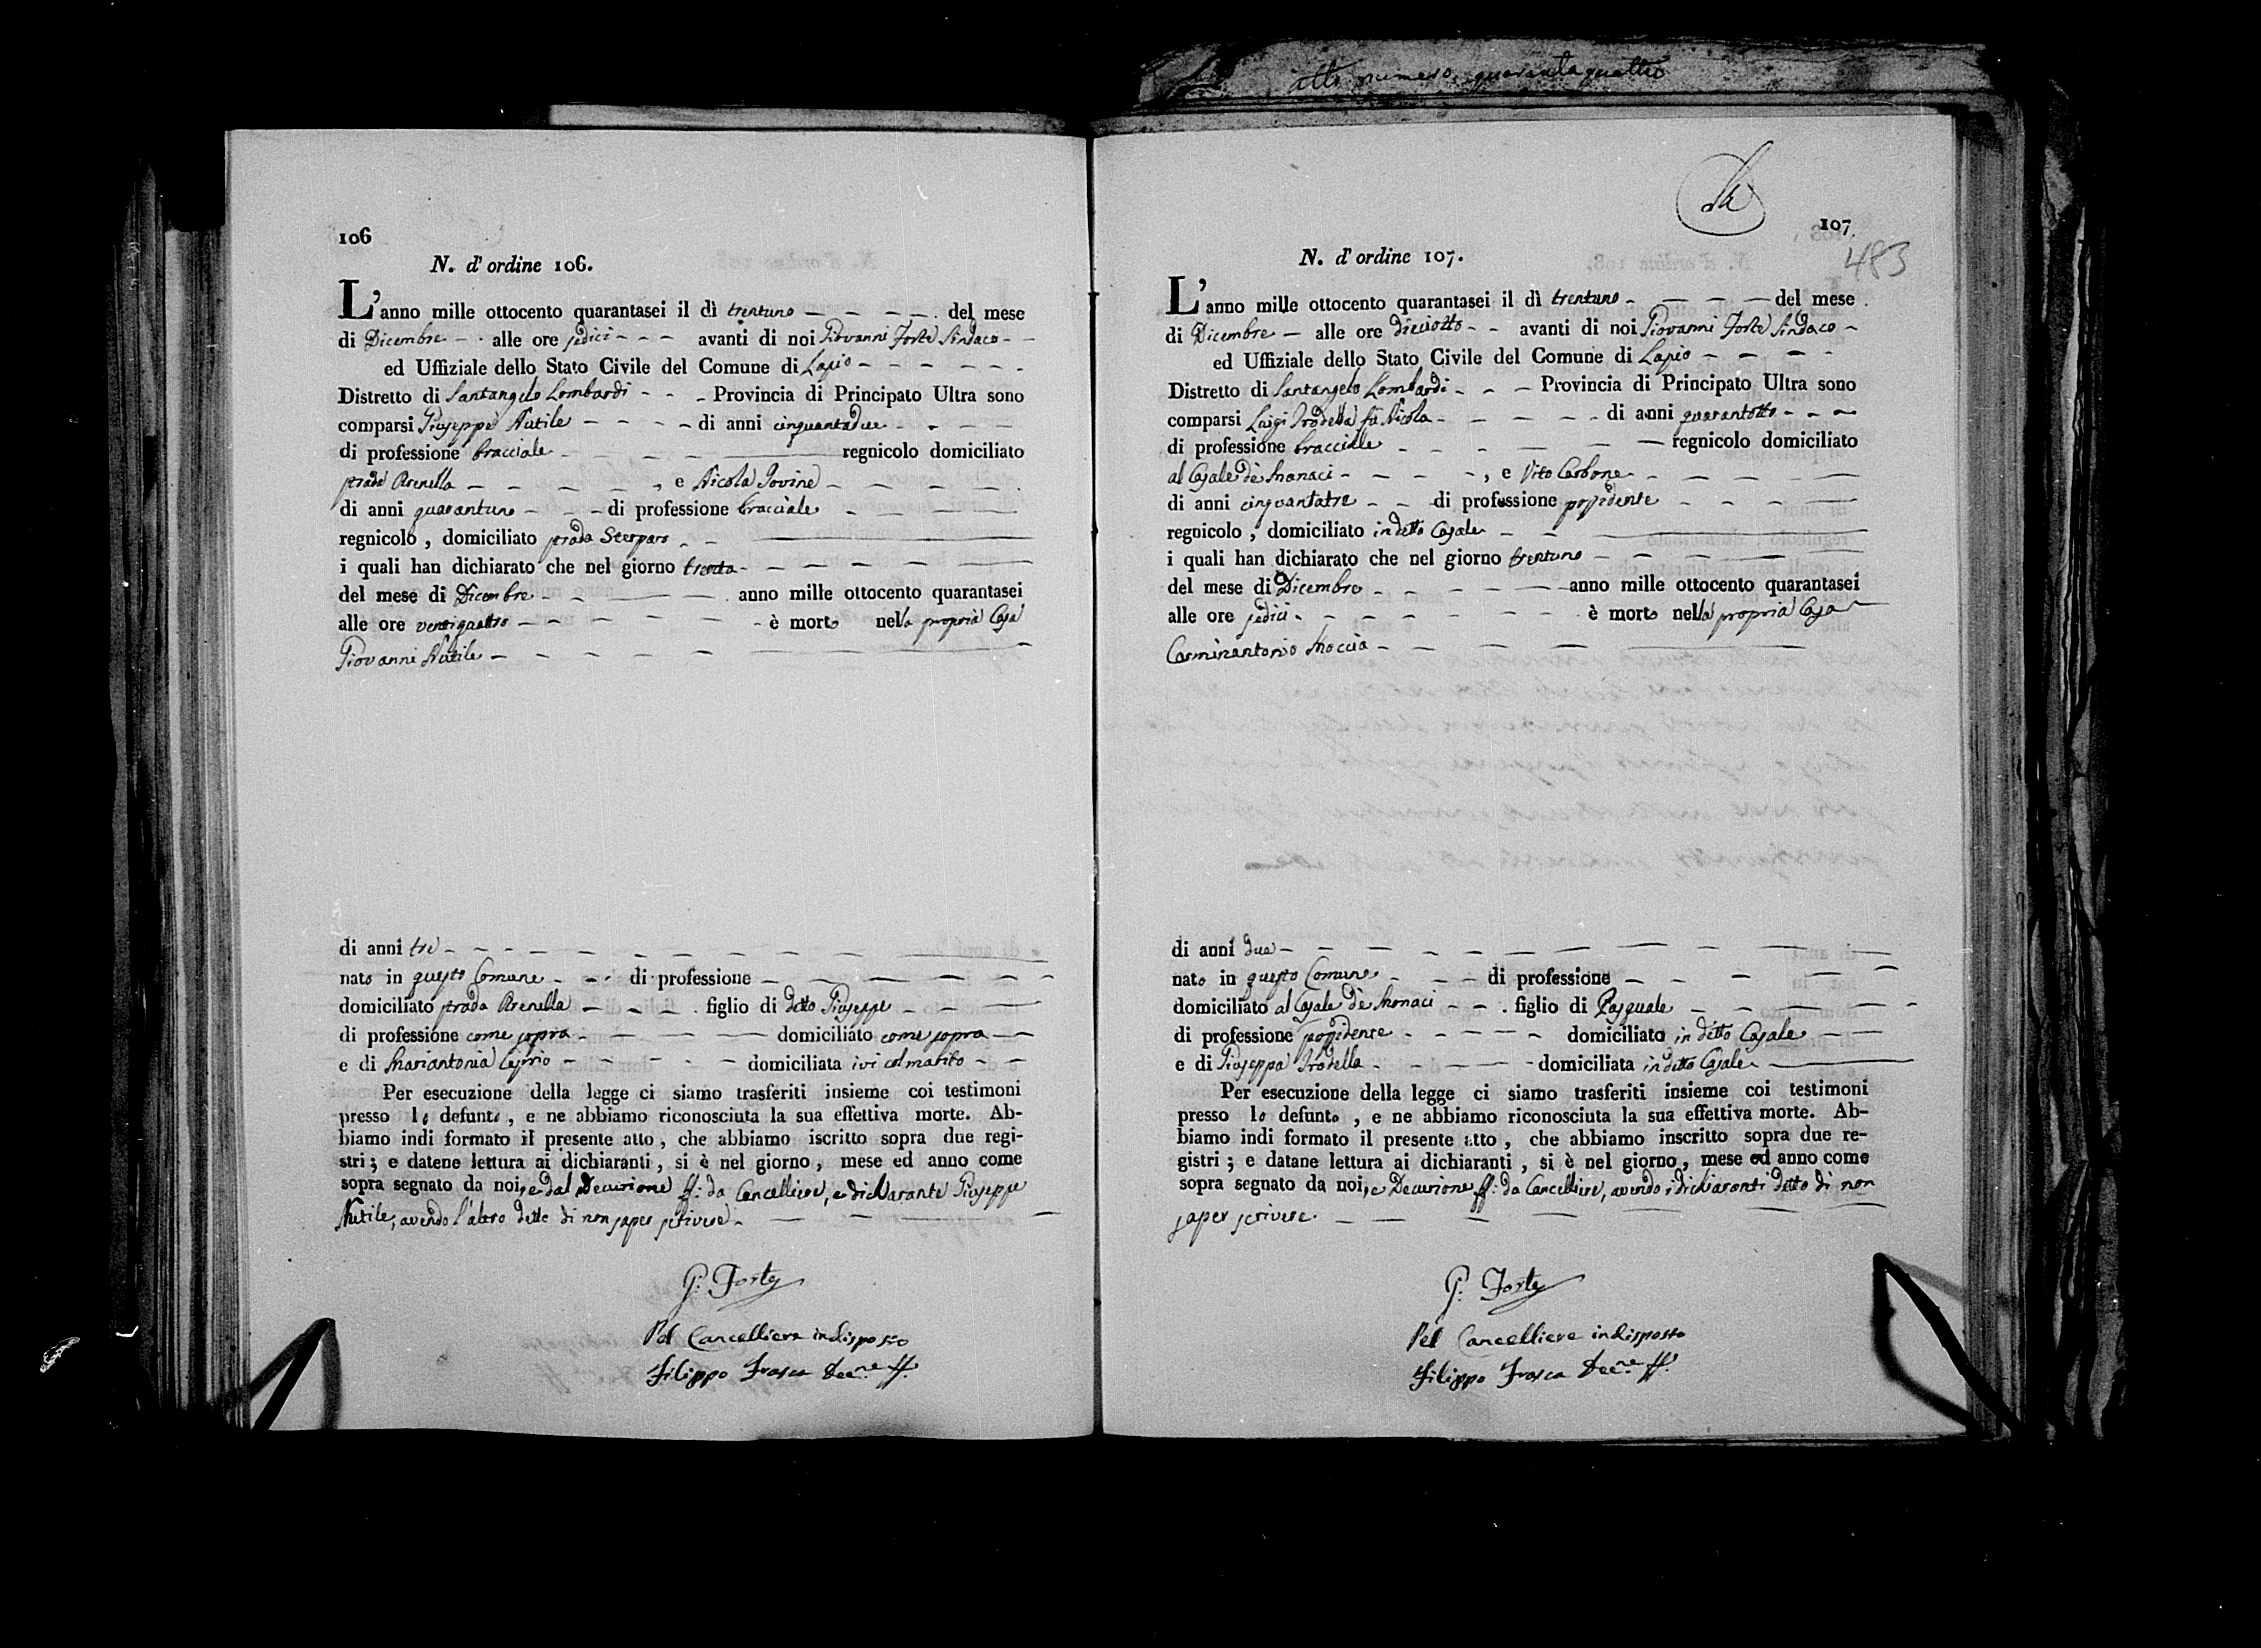 atto numero quarantaquattro
106
N. d'ordine 106.
L'anno mille ottocento quarantasei il dì trentuno del mese
di Dicembre alle ore sedici avanti di noi Giovanni Forte Sindaco
ed Uffiziale dello Stato Civile del Comune di Lapio
Distretto di Santangelo Lombardi Provincia di Principato Ultra sono
comparsi Giuseppe Nutile di anni cinquantadue
di professione bracciale regnicolo domiciliato
strada Arenella , e Nicola Iovine
di anni quarantuno di professione bracciale
regnicolo , domiciliato strada Sterparo
i quali han dichiarato che nel giorno trenta
del mese di Dicembre anno mille ottocento quarantasei
alle ore ventiquattro è morto nella propria Casa
Giovanni Nutile
di anni tre
nato in questo Comune di professione
domiciliato strada Arenella figlio di detto Giuseppe
di professione come sopra domiciliato come sopra
e di Mariantonia Ciprio domiciliata ivi col marito
Per esecuzione della legge ci siamo trasferiti insieme coi testimoni
presso lo defunto , e ne abbiamo riconosciuta la sua effettiva morte. Ab-
biamo indi formato il presente atto , che abbiamo iscritto sopra due regi-
stri ; e datene lettura ai dichiaranti , si è nel giorno , mese ed anno come
sopra segnato da noi, e dal Decurione ff: da Cancelliere, e dichiarante Giuseppe
Nutile, avendo l'altro detto di non saper scrivere
G: Forte
Pel Cancelliere indisposto
Filippo Frasca Dec.ne ff.
107
483
N. d'ordine 107.
L'anno mille ottocento quarantasei il dì trentuno del mese
di Dicembre alle ore dieciotto avanti di noi Giovanni Forte Sindaco
ed Uffiziale dello Stato Civile del Comune di Lapio
Distretto di Santangelo Lombardi Provincia di Principato Ultra sono
comparsi Luigi Trodella fu Nicola di anni quarantotto
di professione bracciale regnicolo domiciliato
al Casale de Monaci , e Vito Carbone
di anni cinquantatre di professione possidente
regnicolo , domiciliato in detto Casale
i quali han dichiarato che nel giorno trentuno
del mese di Dicembre anno mille ottocento quarantasei
alle ore sedici è morto nella propria Casa
Carminantonio Moccia
di anni due
nato in questo Comune di professione
domiciliato al Casale de Monaci figlio di Pasquale
di professione possidente domiciliato in detto Casale
e di Giuseppa Trodella domiciliata in detto Casale
Per esecuzione della legge ci siamo trasferiti insieme coi testimoni
presso lo defunto , e ne abbiamo riconosciuta la sua effettiva morte. Ab-
biamo indi formato il presente atto , che abbiamo inscritto sopra due re-
gistri ; e datane lettura ai dichiaranti , si è nel giorno , mese ed anno come
sopra segnato da noi, e Decurione ff: da Cancelliere, avendo i dichiaranti detto di non
saper scrivere.
G: Forte
Pel Cancelliere indisposto
Filippo Frasca Dec.ne ff.